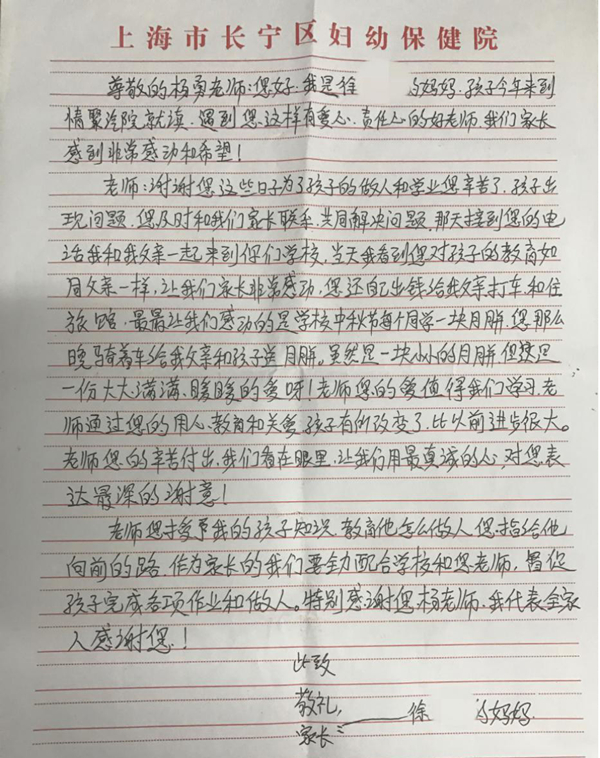 上海市长宁区妇幼保健院
尊敬的杨勇老师:您好.我是徐 的妈妈.孩子今年来到
情繫学院就读.遇到您这样有爱心.责任心的好老师.我们家长
感到非常感动和希望!
老师:谢谢您这些日子为了孩子的做人和学业您辛苦了.孩子出
现问题.您及时和我们家长联系.共同解决问题.那天接到您的电
话我和我父亲一起来到你们学校.当天我看到您对孩子的教育如
同父亲一样,让我们家长非常感动.您还自己出钱给我父亲打车.和住
旅路.最最让我们感动的是学校中秋节每个同学一块月饼.您那么
晚骑着车给我父亲和孩子送月饼。虽然是一块小小的月饼但这是
一份大大.满满.暖暖的爱呀!老师您的爱值得我们学习.老
师通过您的用心.教育和关爱.孩子有所改变了.比以前进步很大。
老师您的辛苦付出.我们看在眼里.让我们用最真诚的心.对您表
达最深的谢意!
老师您授予我的孩子知识.教育他怎么做人.您指给他
向前的路.作为家长的我们要全力配合学校和您老师,督促
孩子完成各项作业和做人。特别感谢您.杨老师.我代表全家
人感谢您.!
此致
敬礼,
家长: 徐 的妈妈.